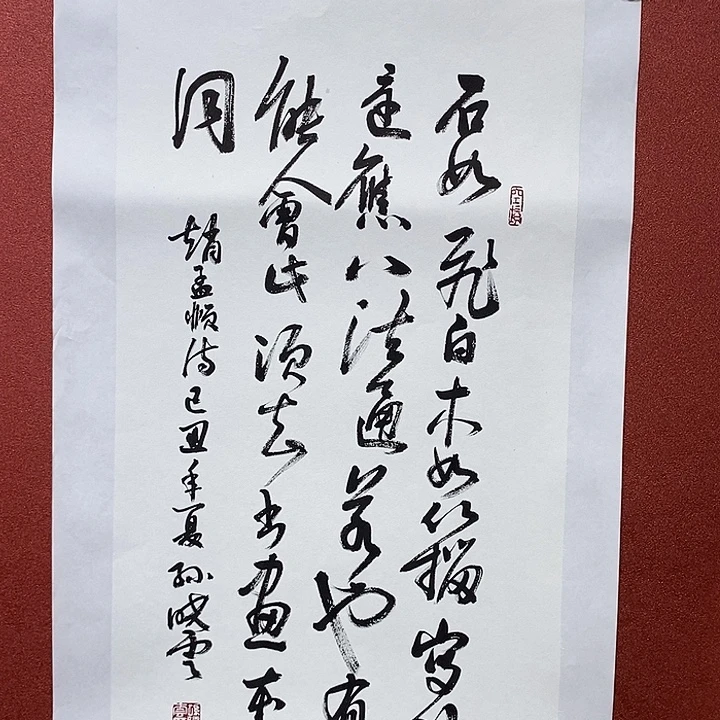 石如飛白木如籀寫
還應八法通若也有
能會此須知書畫本
同
趙孟頫詩己丑年夏孫曉雲